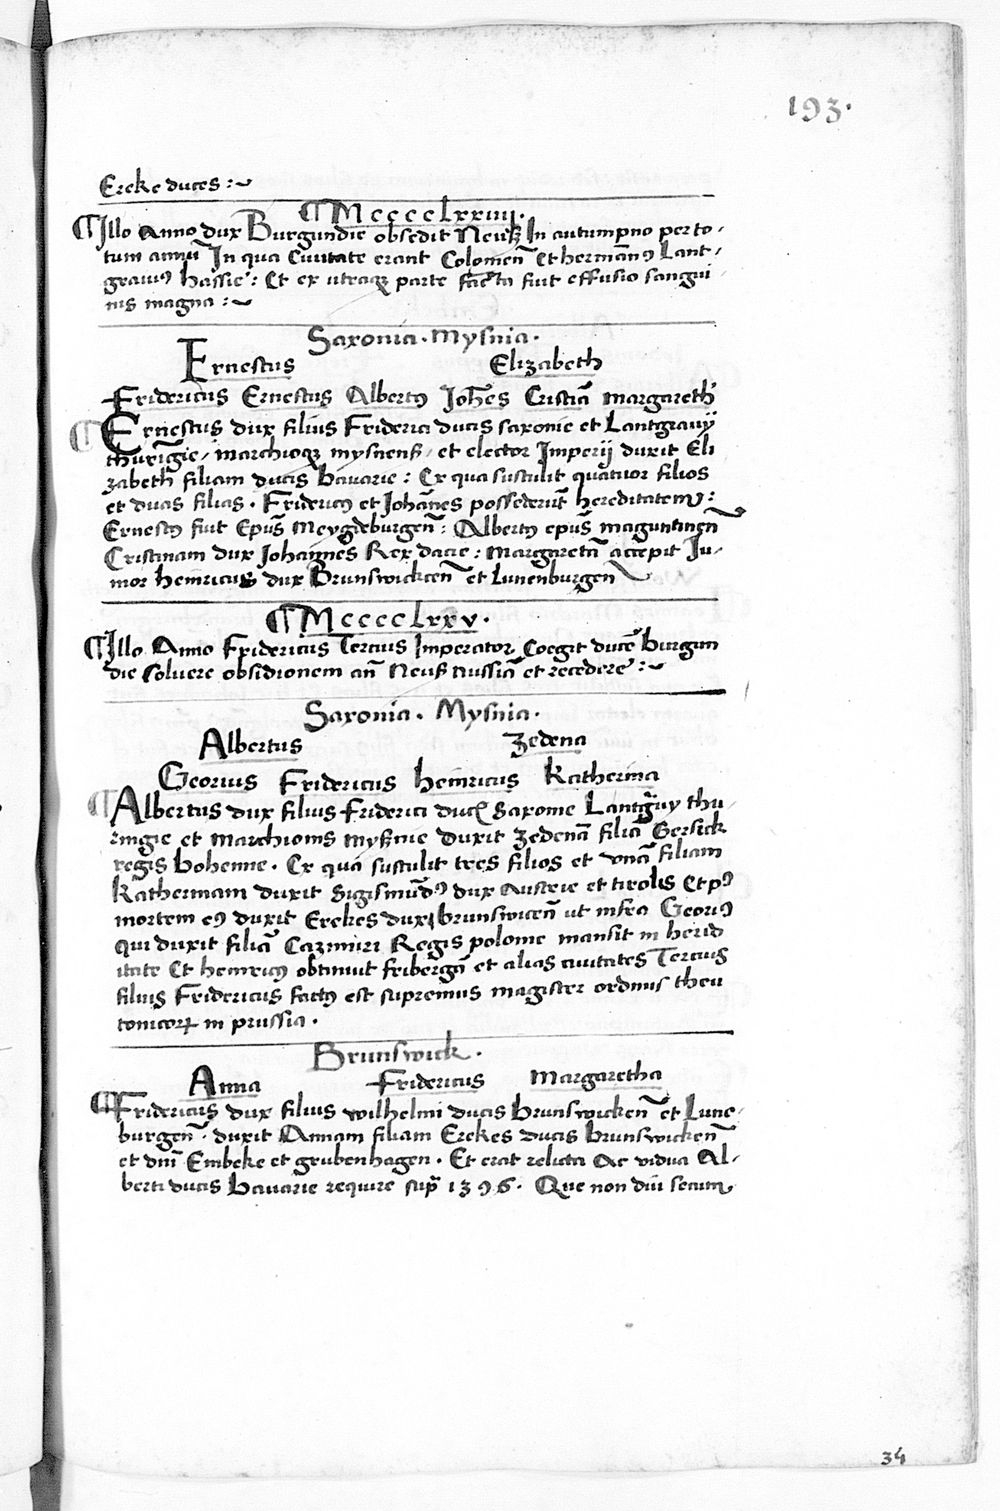 193.
Ereke duces :~
¶ Mccccclxxiiij.
¶ Illo Anno dux Burgundie obsedit Neuß In autumpno per to-
tum annū In qua Ciuitate erant Colomen̄ Et hermanꝰ Lant-
grauiꝰ hassie : Et ex utraqꝫ parte facta fuit effusio sangui
nis magna :~
Saxonia . Mysnia .
Ernestus Elizabeth
Fridericus Ernestus Albertꝰ Joh̄es Cristiā margareth
¶ Ernestus dux filius Friderici ducis saxonie et Lantgrauij
thuringie , marchioqꝫ mysnenß , et elector Imperij duxit Eli
zabeth filiam ducis bauarie : Ex qua sustulit quatuor filios
et duas filias . Fridericꝰ et Johānes possederūt hereditatem :
Ernestꝰ fuit Epūs Meygdeburgen̄ : Albertꝰ epūs maguntinen̄
Cristinam dux Johannes Rex dacie : Margaretā accepit Iu-
nior heinricus dux Brunswickcen̄ et Lunenburgen̄
¶ Mccccclxxv .
¶ Illo Anno Fridericus Tercius Imperator Coegit ducē burgun
die soluere obsidionem an̄ Neuß nussiā et recedere :~
Saxonia . Mysnia .
Albertus Zedena
Georius Fridericus heinricus Katherina
¶ Albertus dux filius Friderici duc̄ Saxonie Lantg̃uy thu-
ringie et marchionis myßnie duxit Zedenā filiā Gersick
regis bohemie . Ex qua sustulit tres filios et vnā filiam
Katherinam duxit Sigismūdꝰ dux austrie et tirolis Et pꝰ
mortem eꝰ duxit Erekes dux brunswicen̄ ut infra Georiꝰ
qui duxit filiā Cazimiri Regis polonie mansit in herid
itate Et heinricꝰ obtinuit fribergā et alias ciuitates Tercius
filius Fridericus factꝰ est supremus magister ordinis theu
tonicoꝝ in prussia .
Brunswick .
Anna Fridericus Margaretha
¶ Fridericus dux filius wilhelmi ducis brunswicken̄ et Lune-
burgen̄ . duxit Annam filiam Erekes ducis brunswicken̄
et dn̄i Embeke et grubenhagen . Et erat relicta ac vidua Al-
berti ducis bauarie require sup̄ 1396 . Que non diu secum
34